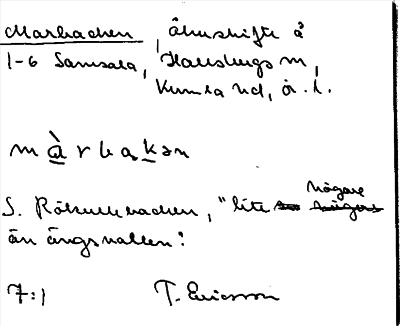 Marbacken, Åkerskifte å
1-6 Samsala, Hallsbergs sn,
Kumla hd, Ör. l.
m à r b a k ə n
S. Rökullbacken, "lite högare
än ängsvallen".
7:1 T. Ericsson